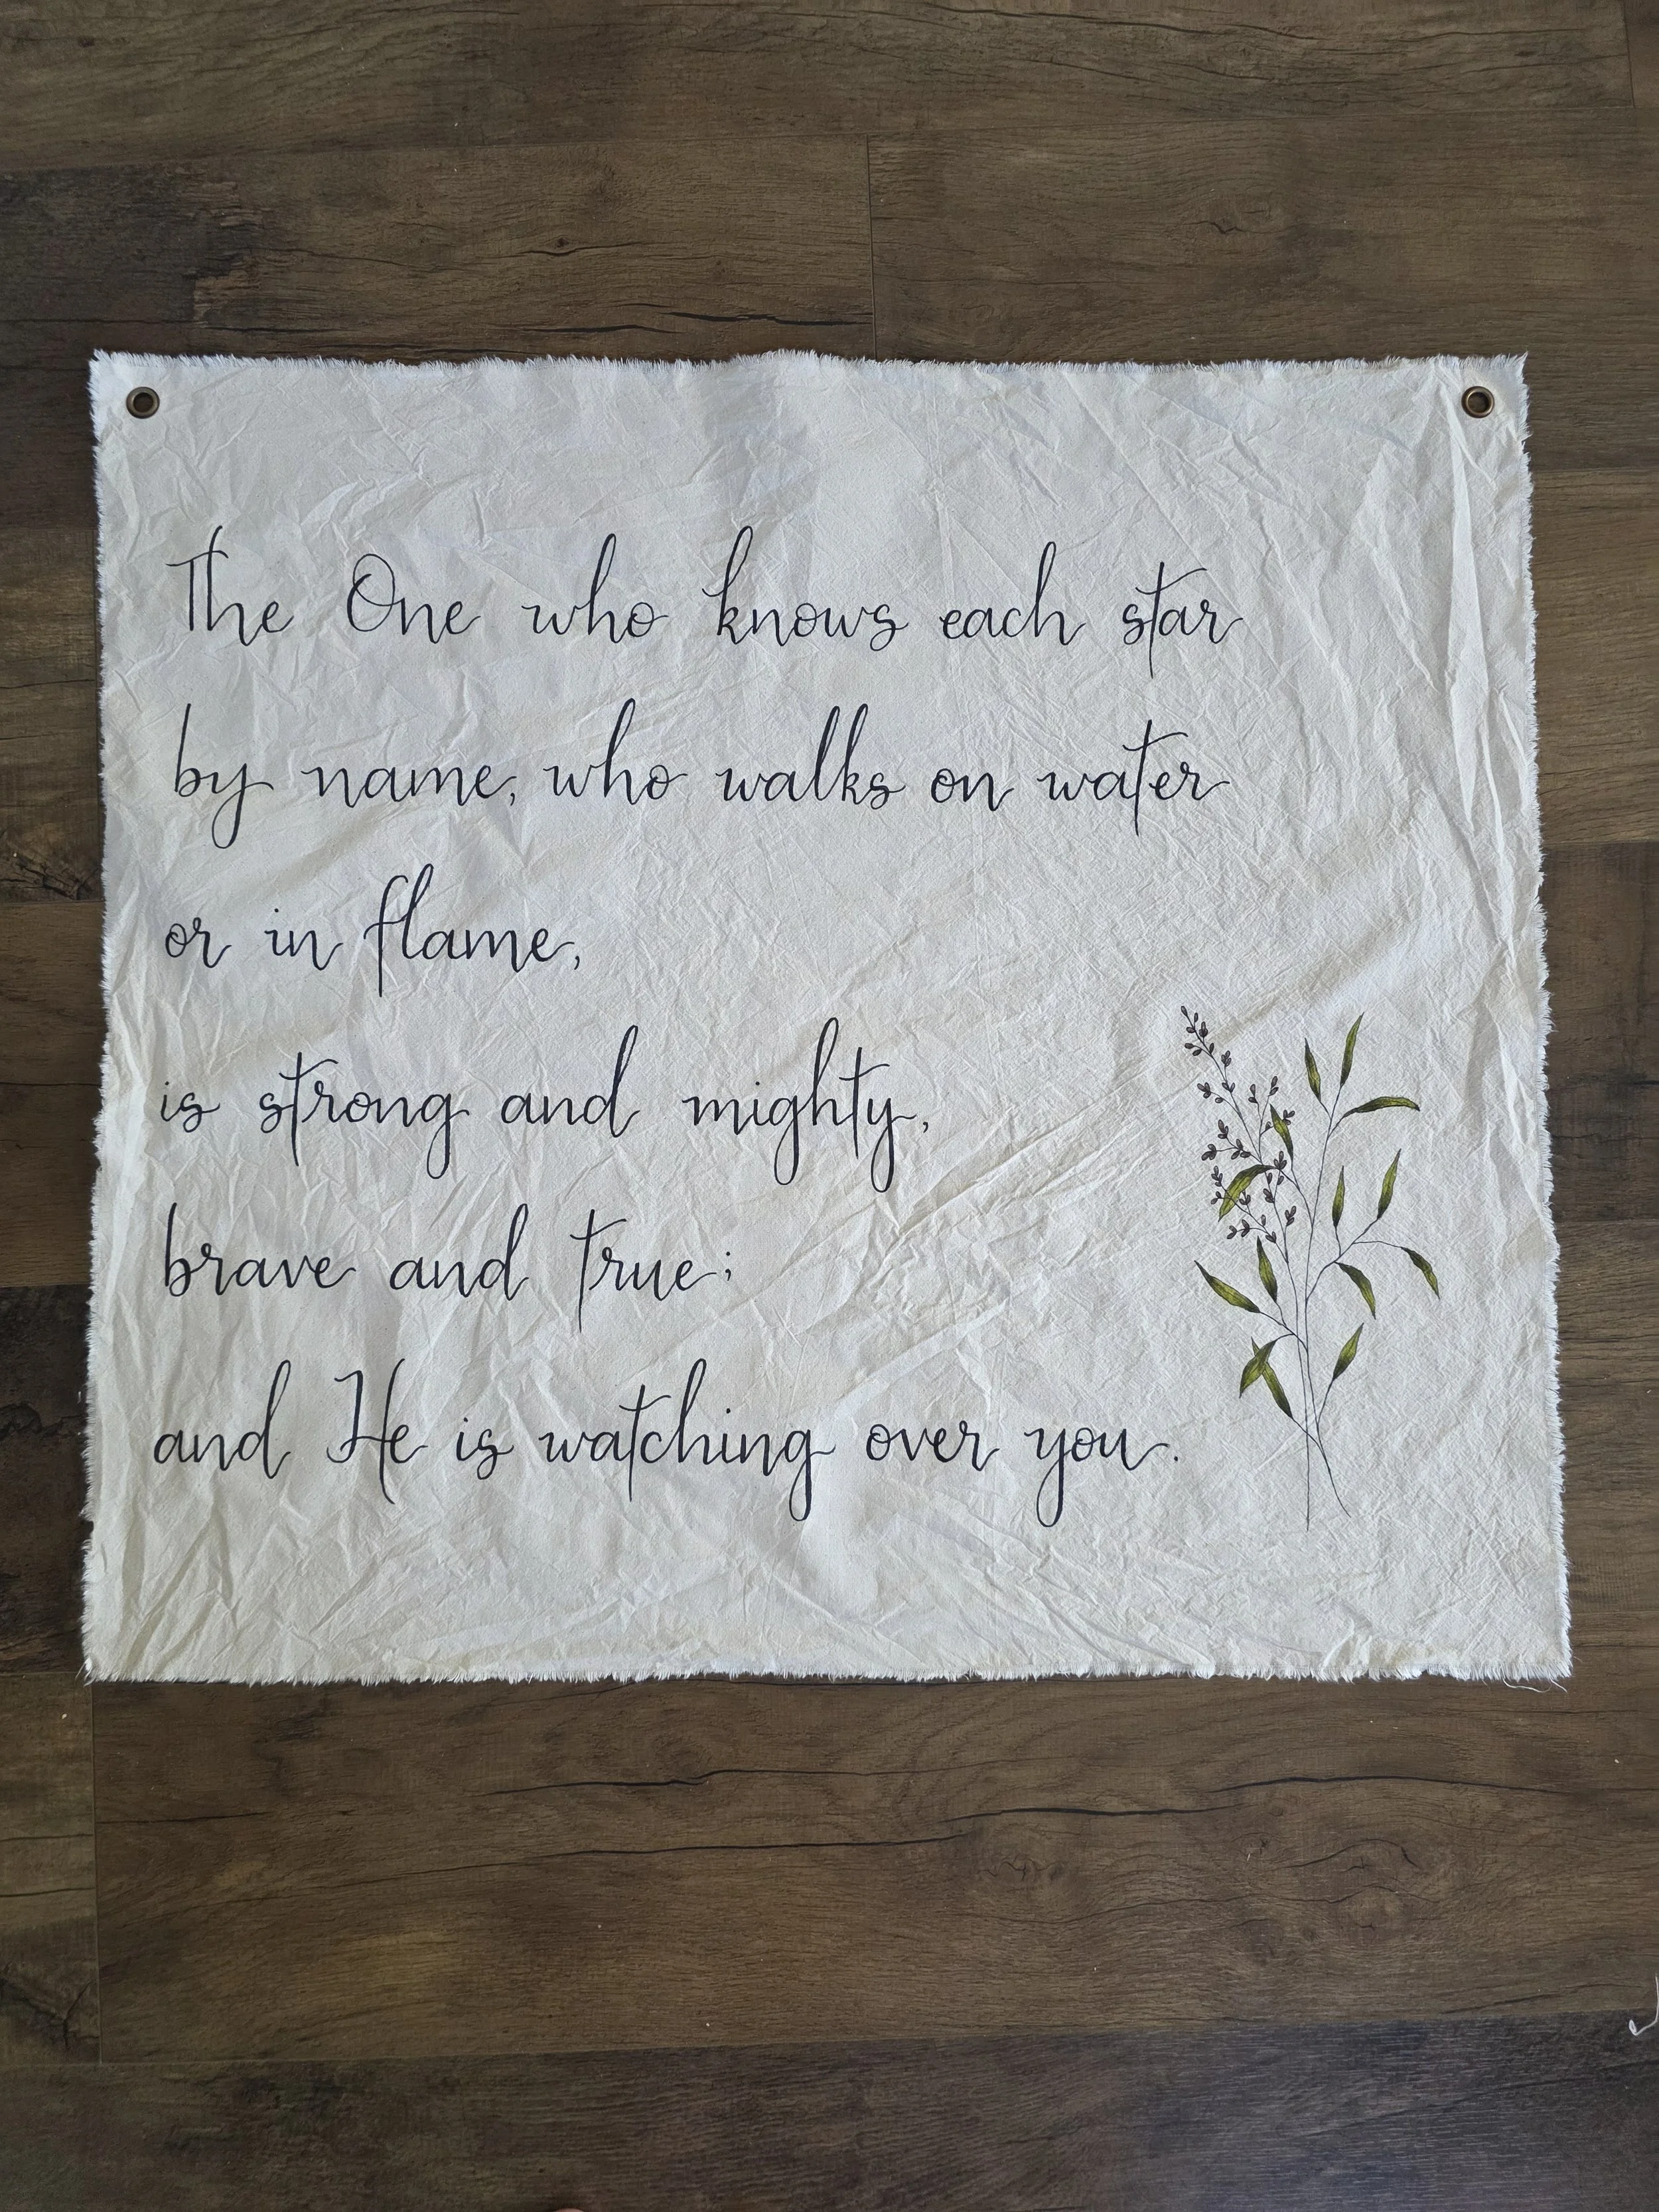 The One who knows each star
by name, who walks on water
or in flame,
is strong and mighty,
brave and true;
and He is watching over you.